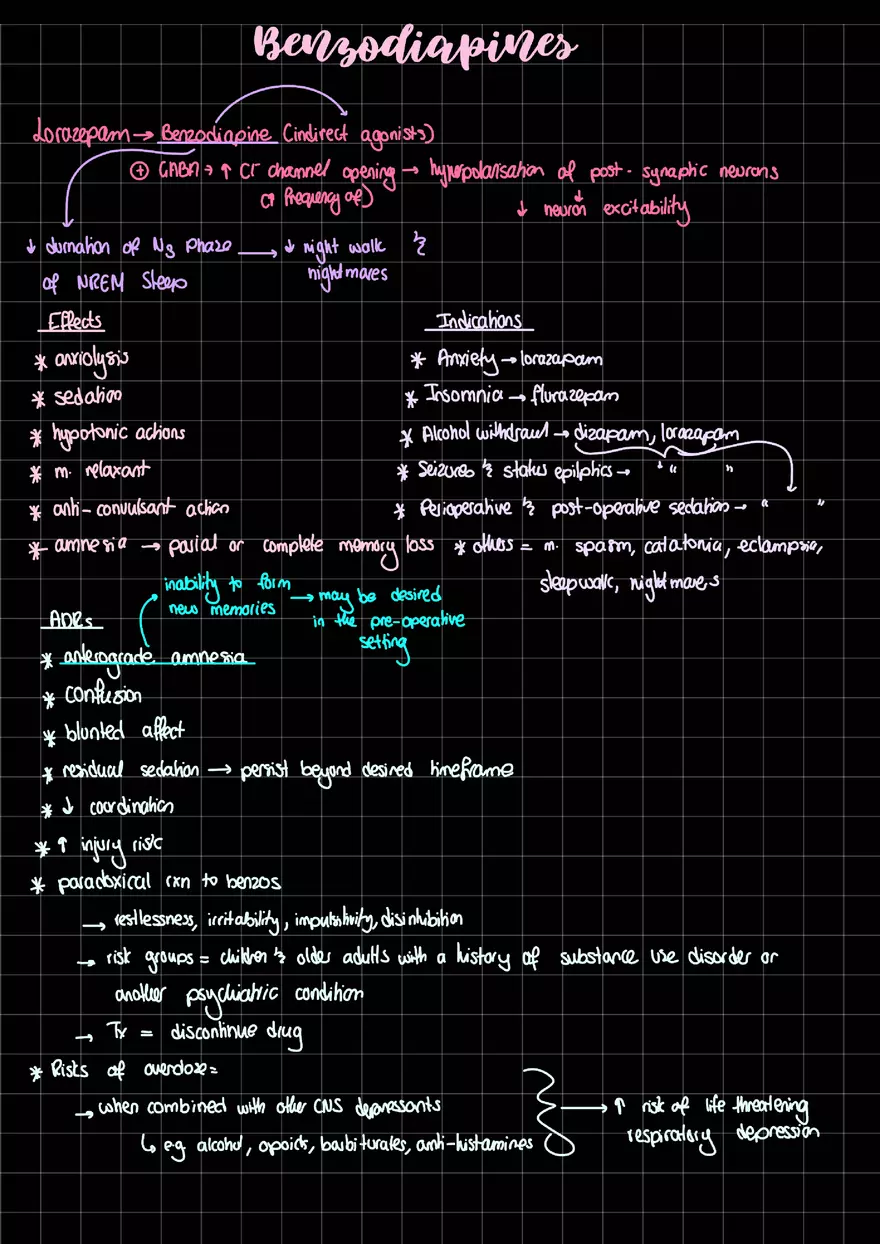 Benzodiapines
Lorazepam → Benzodiapine (indirect agonists)
⊕ GABA → ↑ Cl⁻ channel opening → hyperpolarisation of post-synaptic neurons
(↑ frequency of)
↓ neuron excitability
↓ durnation of N3 phaze → ↓ night walk &
of NREM Sleep
nightmares
Effects
* anxiolysis
* sedation
* hypotonic actions
* m. relaxant
* anti-convulsant action
* amnesia → parial or complete memory loss
Indications
* Anxiety → lorazapam
* Insomnia → flurazepam
* Alcohol withdrawl → dizapam, lorazapam
* Seizures & status epilphics → " "
* Perioperative & post-operative sedation → " "
* others = m. spasm, catatonia, eclampsia,
sleepwalk, nightmares
ADRs
inability to form
new memories
→ may be desired
in the pre-operative
setting
* anterograde amnesia
* confusion
* blunted affect
* residual sedation → persist beyond desired timeframe
* ↓ coordination
* ↑ injury risk
* paradoxical rxn to benzos
→ restlessness, irritability, impulsitivity, disinhibition
→ risk groups = children & older adults with a history of substance use disorder or
another psychiatric condition
→ Tx = discontinue drug
* Risks of overdoze =
→ when combined with other CNS depressants
↳ eg alcohol, opoids, barbiturates, anti-histamines
→ ↑ risk of life threatening
respiratory depression